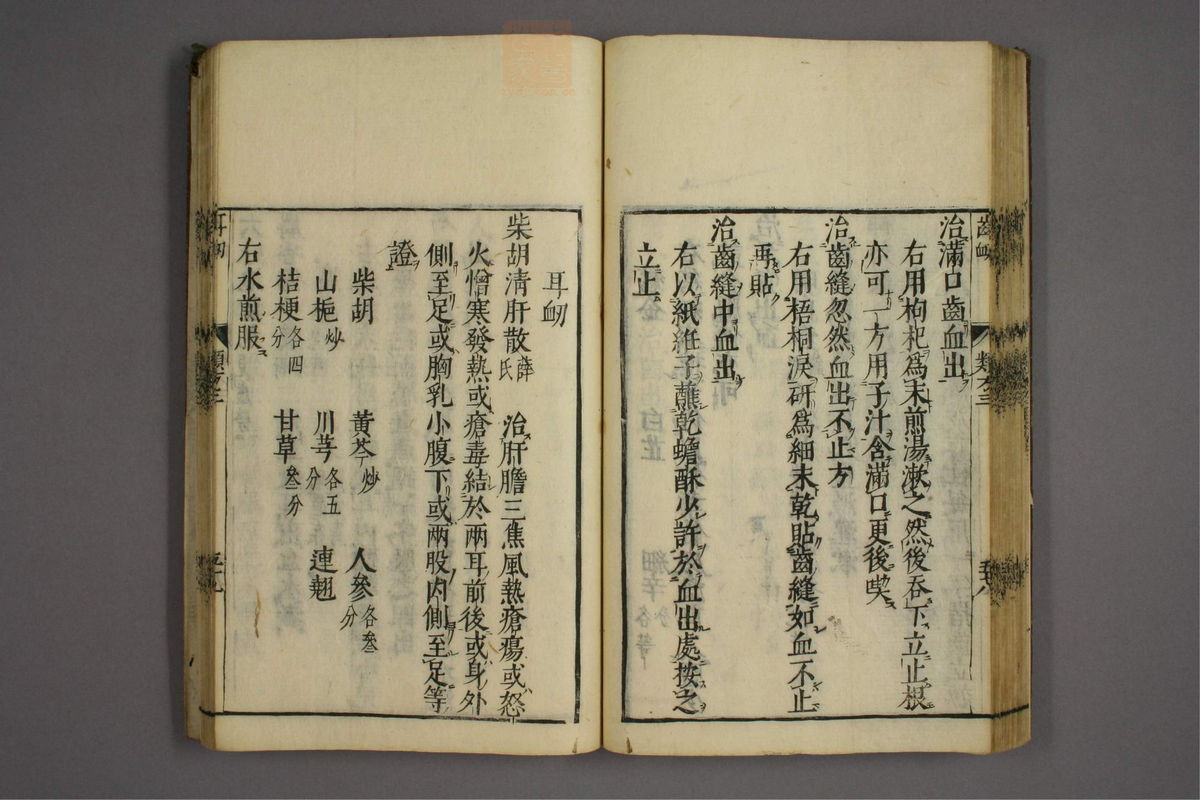 治滿口齒血出
右用枸杞爲末煎湯漱之然後吞下立止根
亦可一方用子汁含滿口更後喫
治齒縫忽然血出不止方
右用梧桐淚研爲細末乾貼齒縫如血不止
再貼
治齒縫中血出
右以紙絍子蘸乾蟾酥少許於血出處按之
立止
耳衂
柴胡清肝散薛氏 治肝膽三焦風熱瘡瘍或怒
火憎寒發熱或瘡毒結於兩耳前後或身外
側至足或胸乳小腹下或兩股內側至足等
證
柴胡 黃芩炒 人參各叁分
山梔炒 川芎各五分 連翹
桔梗各四分 甘草叁分
右水煎服